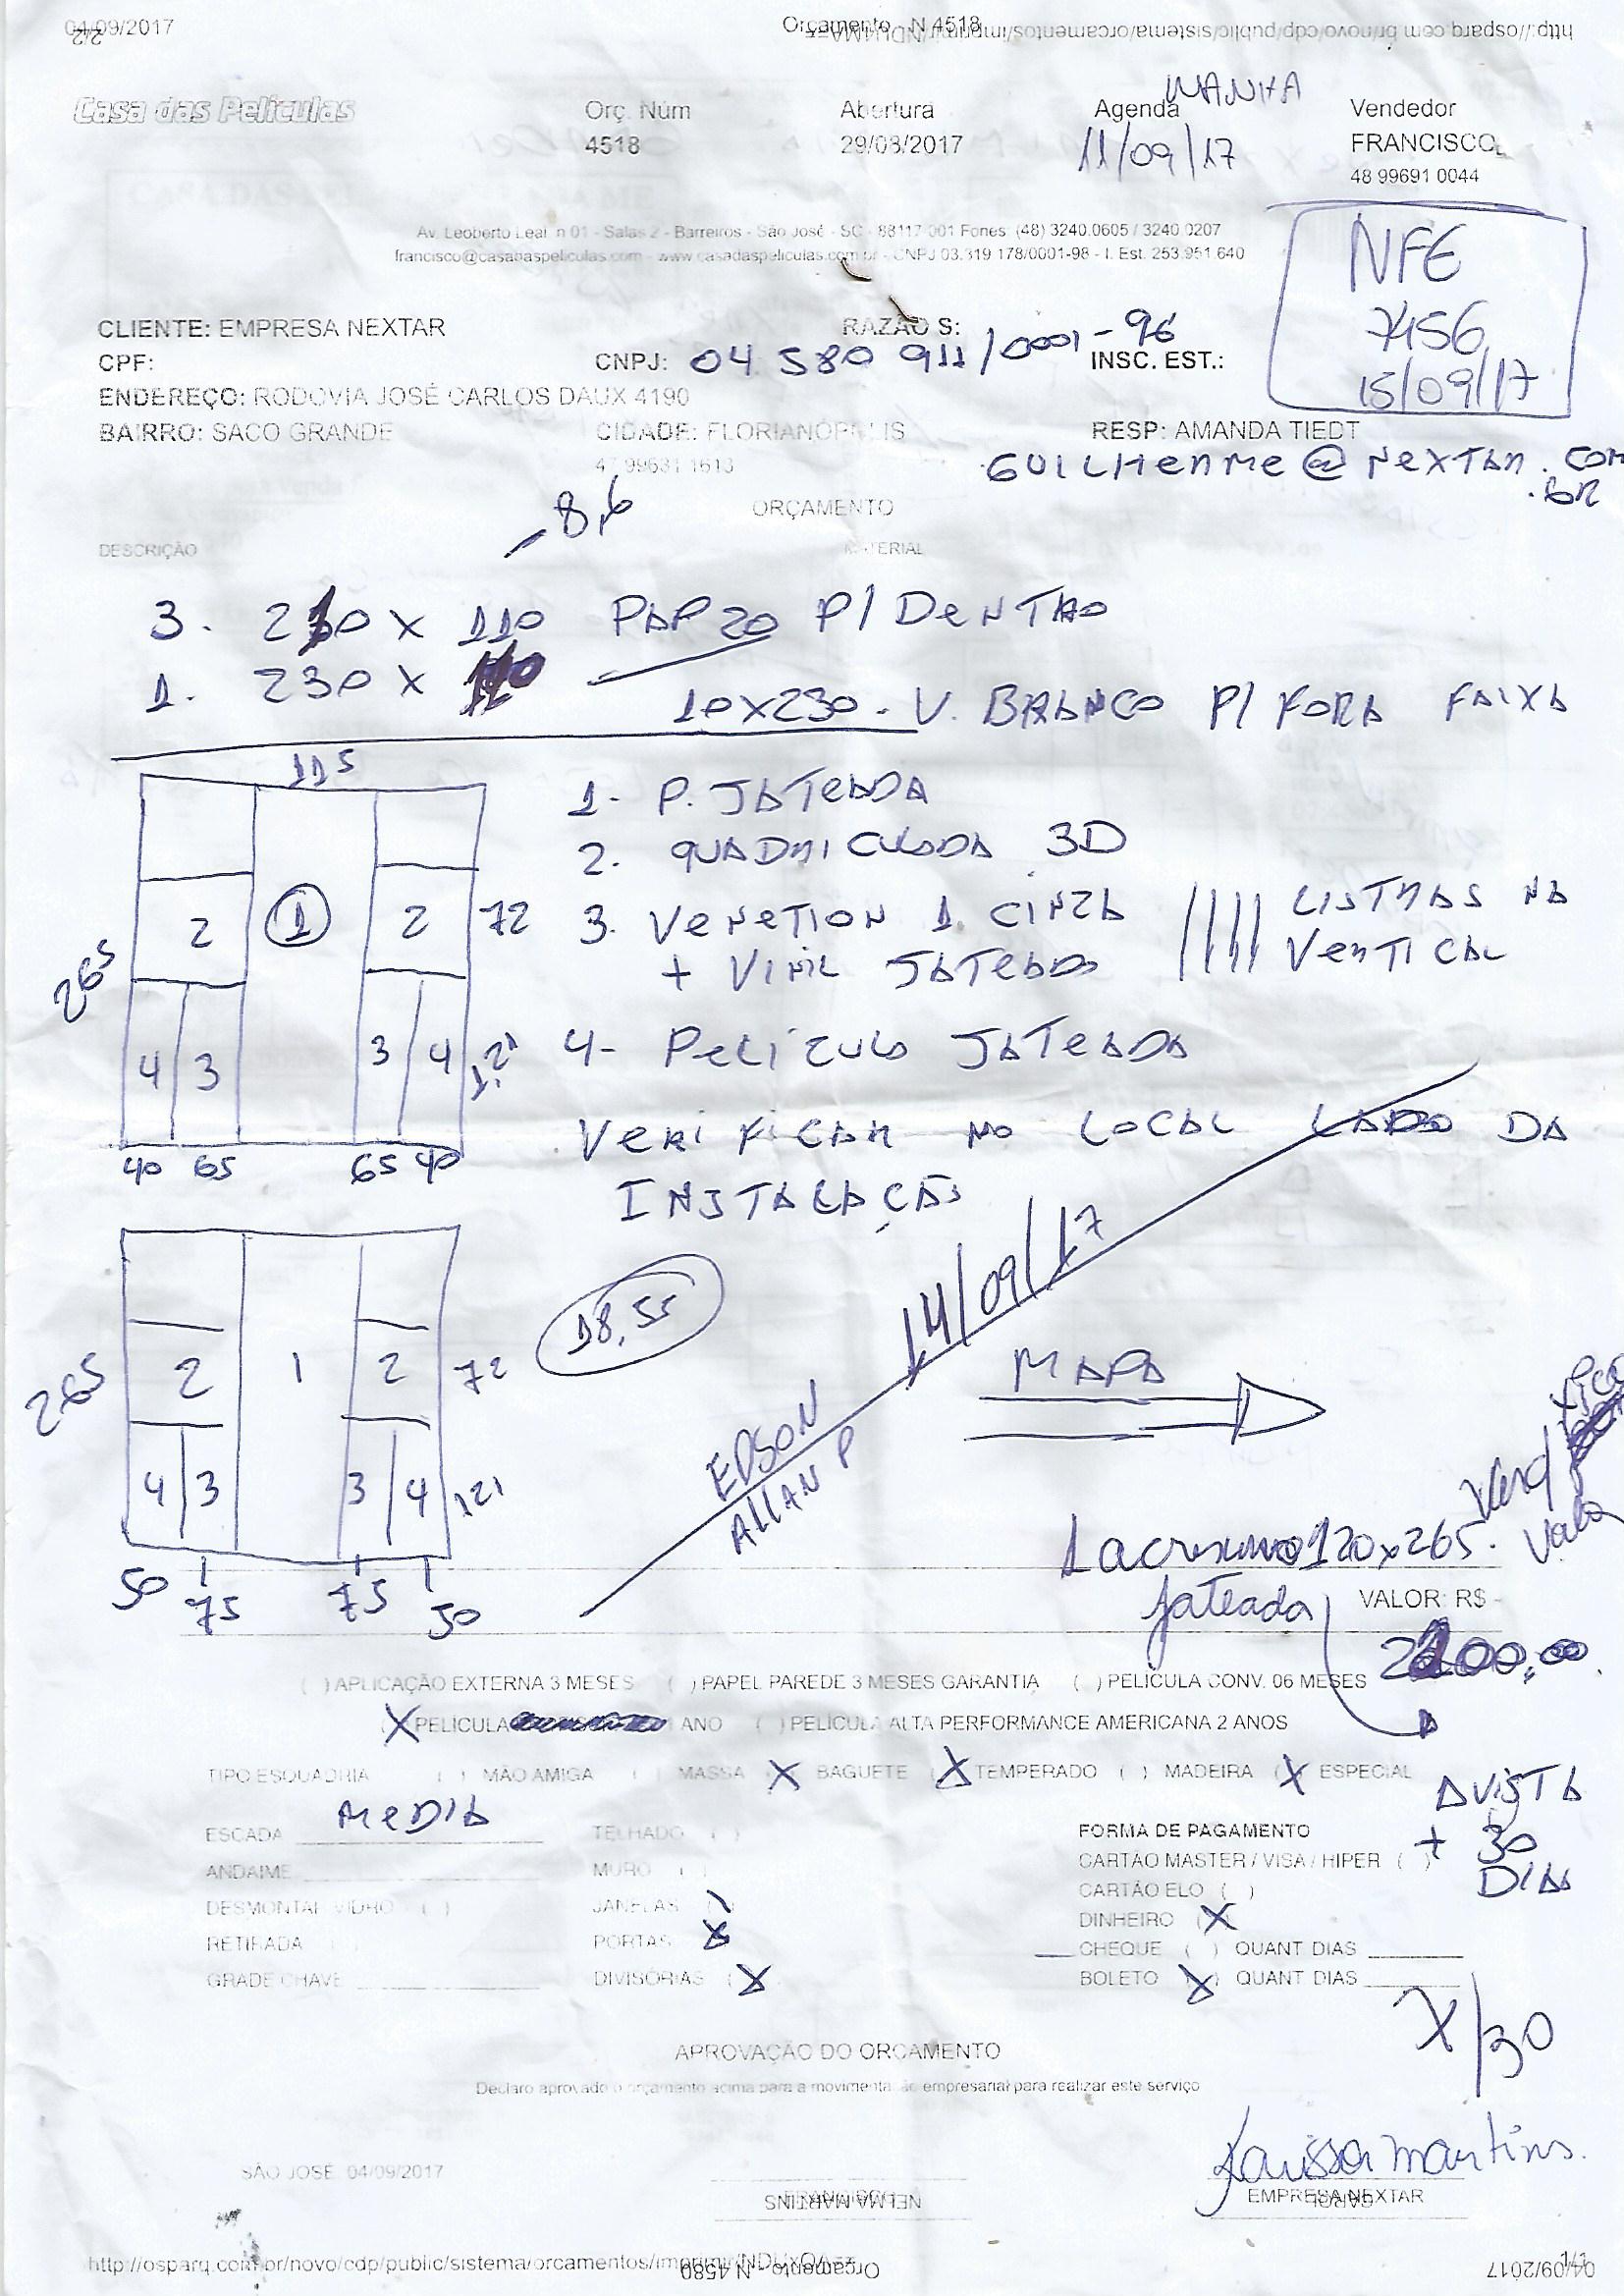 04/09/2017 Orçamento - N 4518
2/2 http://osparq.com.br/novo/cdp/public/sistema/orcamentos/imprimir/NDUxMA==
Casa das Películas
Orç. Núm Abertura Agenda MANHA Vendedor
4518 29/08/2017 11/09/17 FRANCISCO
48 99691 0044
Av. Leoberto Leal n 01 - Salas 2 - Barreiros - São José - SC - 88117 001 Fones: (48) 3240.0605 / 3240 0207
francisco@casadaspeliculas.com - www.casadaspeliculas.com.br - CNPJ 03.319 178/0001-98 - I. Est. 253.951.640
NFE
7456
15/09/17
CLIENTE: EMPRESA NEXTAR RAZÃO S:
CPF: CNPJ: 04 580 911/0001-96 INSC. EST.:
ENDEREÇO: RODOVIA JOSÉ CARLOS DAUX 4190
BAIRRO: SACO GRANDE CIDADE: FLORIANÓPOLIS RESP: AMANDA TIEDT
47 99631 1613 GUILHERME@NEXTAR.COM
.BR
-8,6 ORÇAMENTO
DESCRIÇÃO MATERIAL
3. 210 X 110 PAP 20 P/ DENTRO
1. 230 X 110
10X230. V. BRANCO P/ FORA FAIXA
115
1- P. JATEADA
2. QUADRICULADA 3D
2 1 2 72
3. VENETION 1. CINZA |||| LISTRAS NA
+ VINIL JATEADO VERTICAL
265
4 3 3 4 1.21
4- PELÍCULA JATEADA
40 65 65 40
VERIFICAR NO LOCAL LADO DA
INSTALAÇÃO
18,55
14/09/17
265
2 1 2 72
MAPA
EDSON
ALLAN P
4 3 3 4 121
50 75 75 50
1 acrescimo 120x265.
Jateada VALOR: R$ -
2200,00
( ) APLICAÇÃO EXTERNA 3 MESES ( ) PAPEL PAREDE 3 MESES GARANTIA ( ) PELÍCULA CONV. 06 MESES
(X PELÍCULA ANO ( ) PELÍCULA ALTA PERFORMANCE AMERICANA 2 ANOS
TIPO ESQUADRIA ( ) MÃO AMIGA ( ) MASSA X BAGUETE (X TEMPERADO ( ) MADEIRA (X ESPECIAL
AVISTA
+ 30
DIAS
ESCADA MEDIA TELHADO ( ) FORMA DE PAGAMENTO
ANDAIME MURO ( ) CARTÃO MASTER / VISA / HIPER ( )
DESMONTAR VIDRO ( ) JANELAS ( ) CARTÃO ELO ( )
RETIRADA PORTAS X DINHEIRO (X
CHEQUE ( ) QUANT DIAS
GRADE CHAVE DIVISÓRIAS (X BOLETO (X) QUANT DIAS
X/30
APROVAÇÃO DO ORÇAMENTO
Declaro aprovado o orçamento acima para a movimentação empresarial para realizar este serviço
Larissa Martins.
SÃO JOSÉ, 04/09/2017
FRANCISCO EMPRESA NEXTAR
NELMA MARTINS
http://osparq.com.br/novo/cdp/public/sistema/orcamentos/imprimir/NDUxOA== 1/1
Orçamento - N 4580 04/09/2017